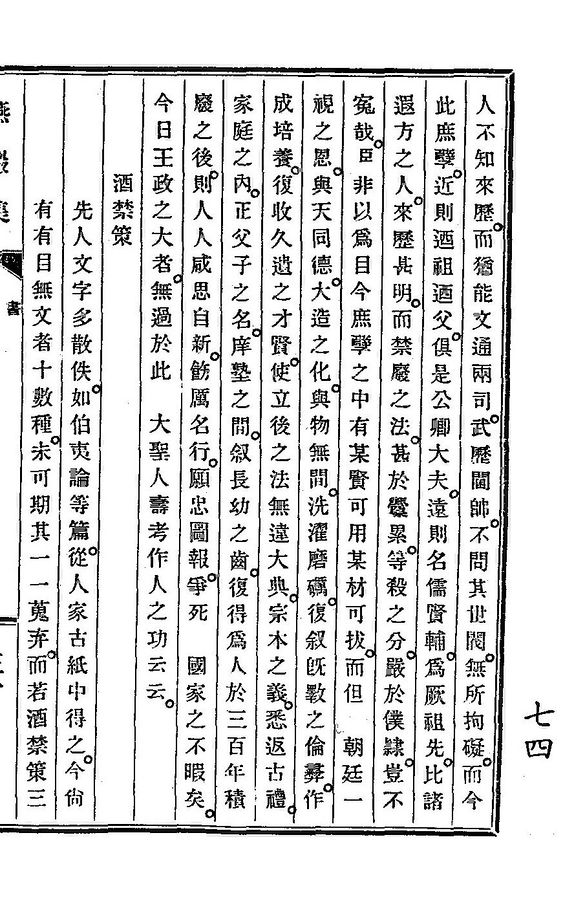 人不知來歷。而猶能文通兩司。武歷閫帥。不問其世閥。無所拘礙。而今
此庶孽。近則迺祖迺父。俱是公卿大夫。遠則名儒賢輔。爲厥祖先。比諸
遐方之人。來歷甚明。而禁廢之法。甚於釁累。等殺之分。嚴於僕隸。豈不
寃哉。臣非以爲目今庶孽之中有某賢可用某材可拔。而但　朝廷一
視之恩。與天同德。大造之化。與物無間。洗濯磨礪。復叙旣斁之倫彝。作
成培養。復收久遺之才賢。使立後之法無違大典。宗本之義。悉返古禮。
家庭之內。正父子之名。庠塾之間。叙長幼之齒。復得爲人於三百年積
廢之後。則人人咸思自新。飭厲名行。願忠圖報。爭死　國家之不暇矣。
今日王政之大者。無過於此　大聖人壽考作人之功云云。
酒禁策
先人文字多散佚。如伯夷論等篇。從人家古紙中得之。今尙
有有目無文者十數種。未可期其一一蒐弃。而若酒禁策三
書
七四